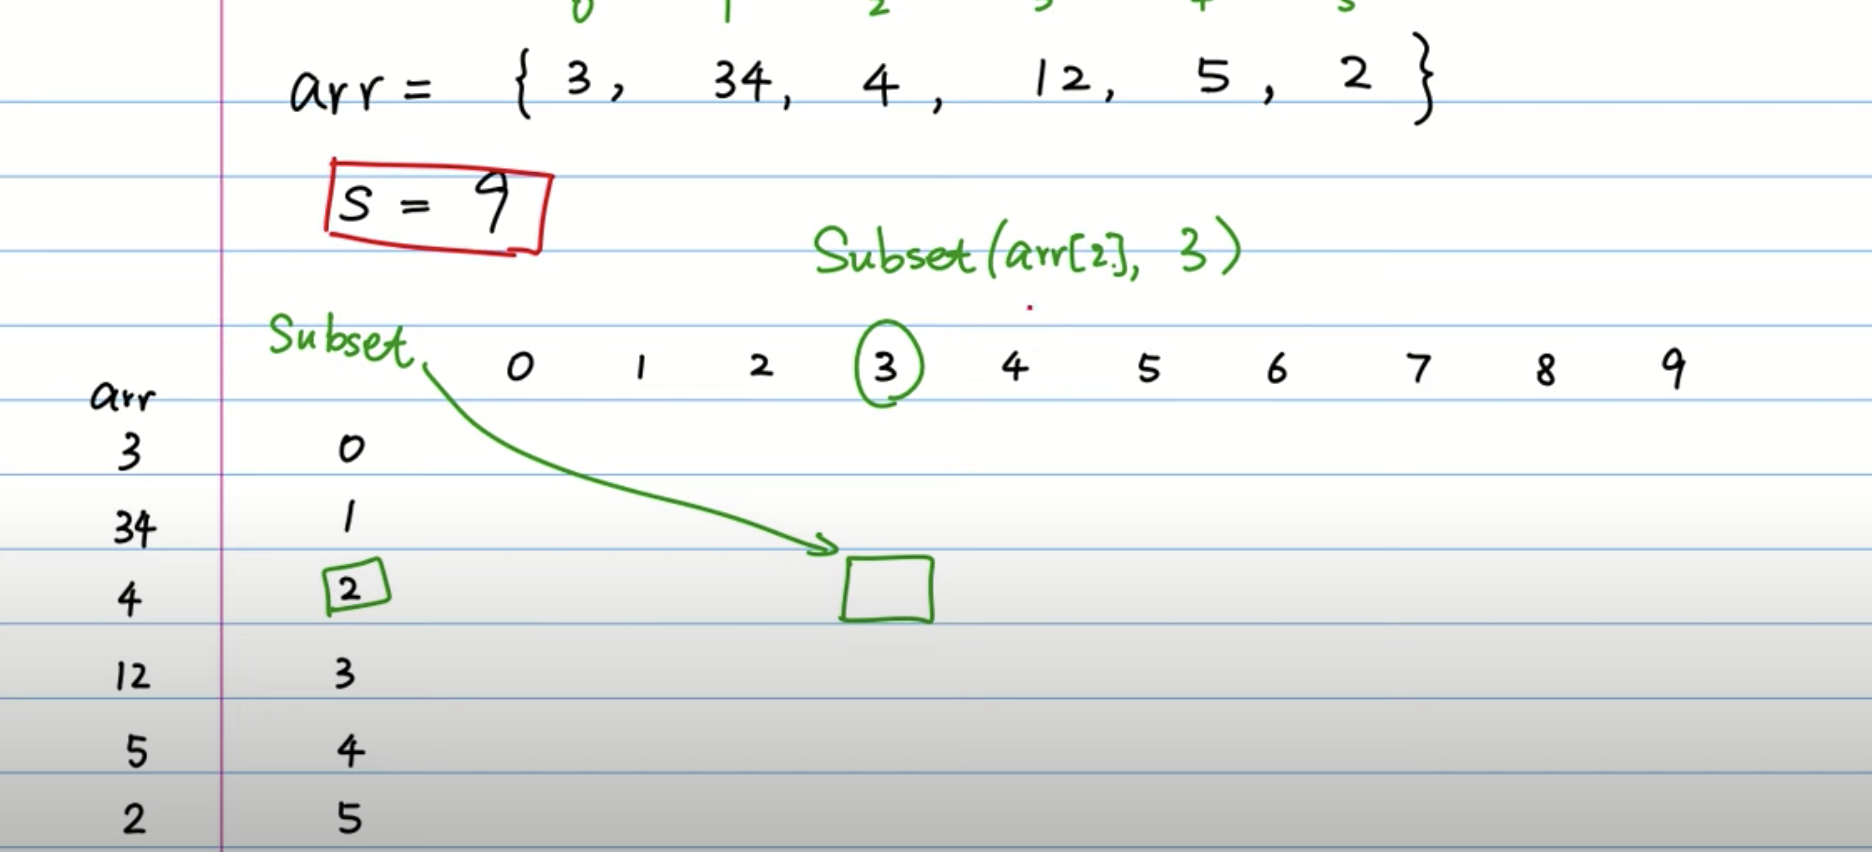 0 1 2 3 4 5
arr = { 3, 34, 4, 12, 5, 2 }
S = 9
Subset(arr[2], 3)
Subset 0 1 2 3 4 5 6 7 8 9
arr
3 0
34 1
4 2
12 3
5 4
2 5